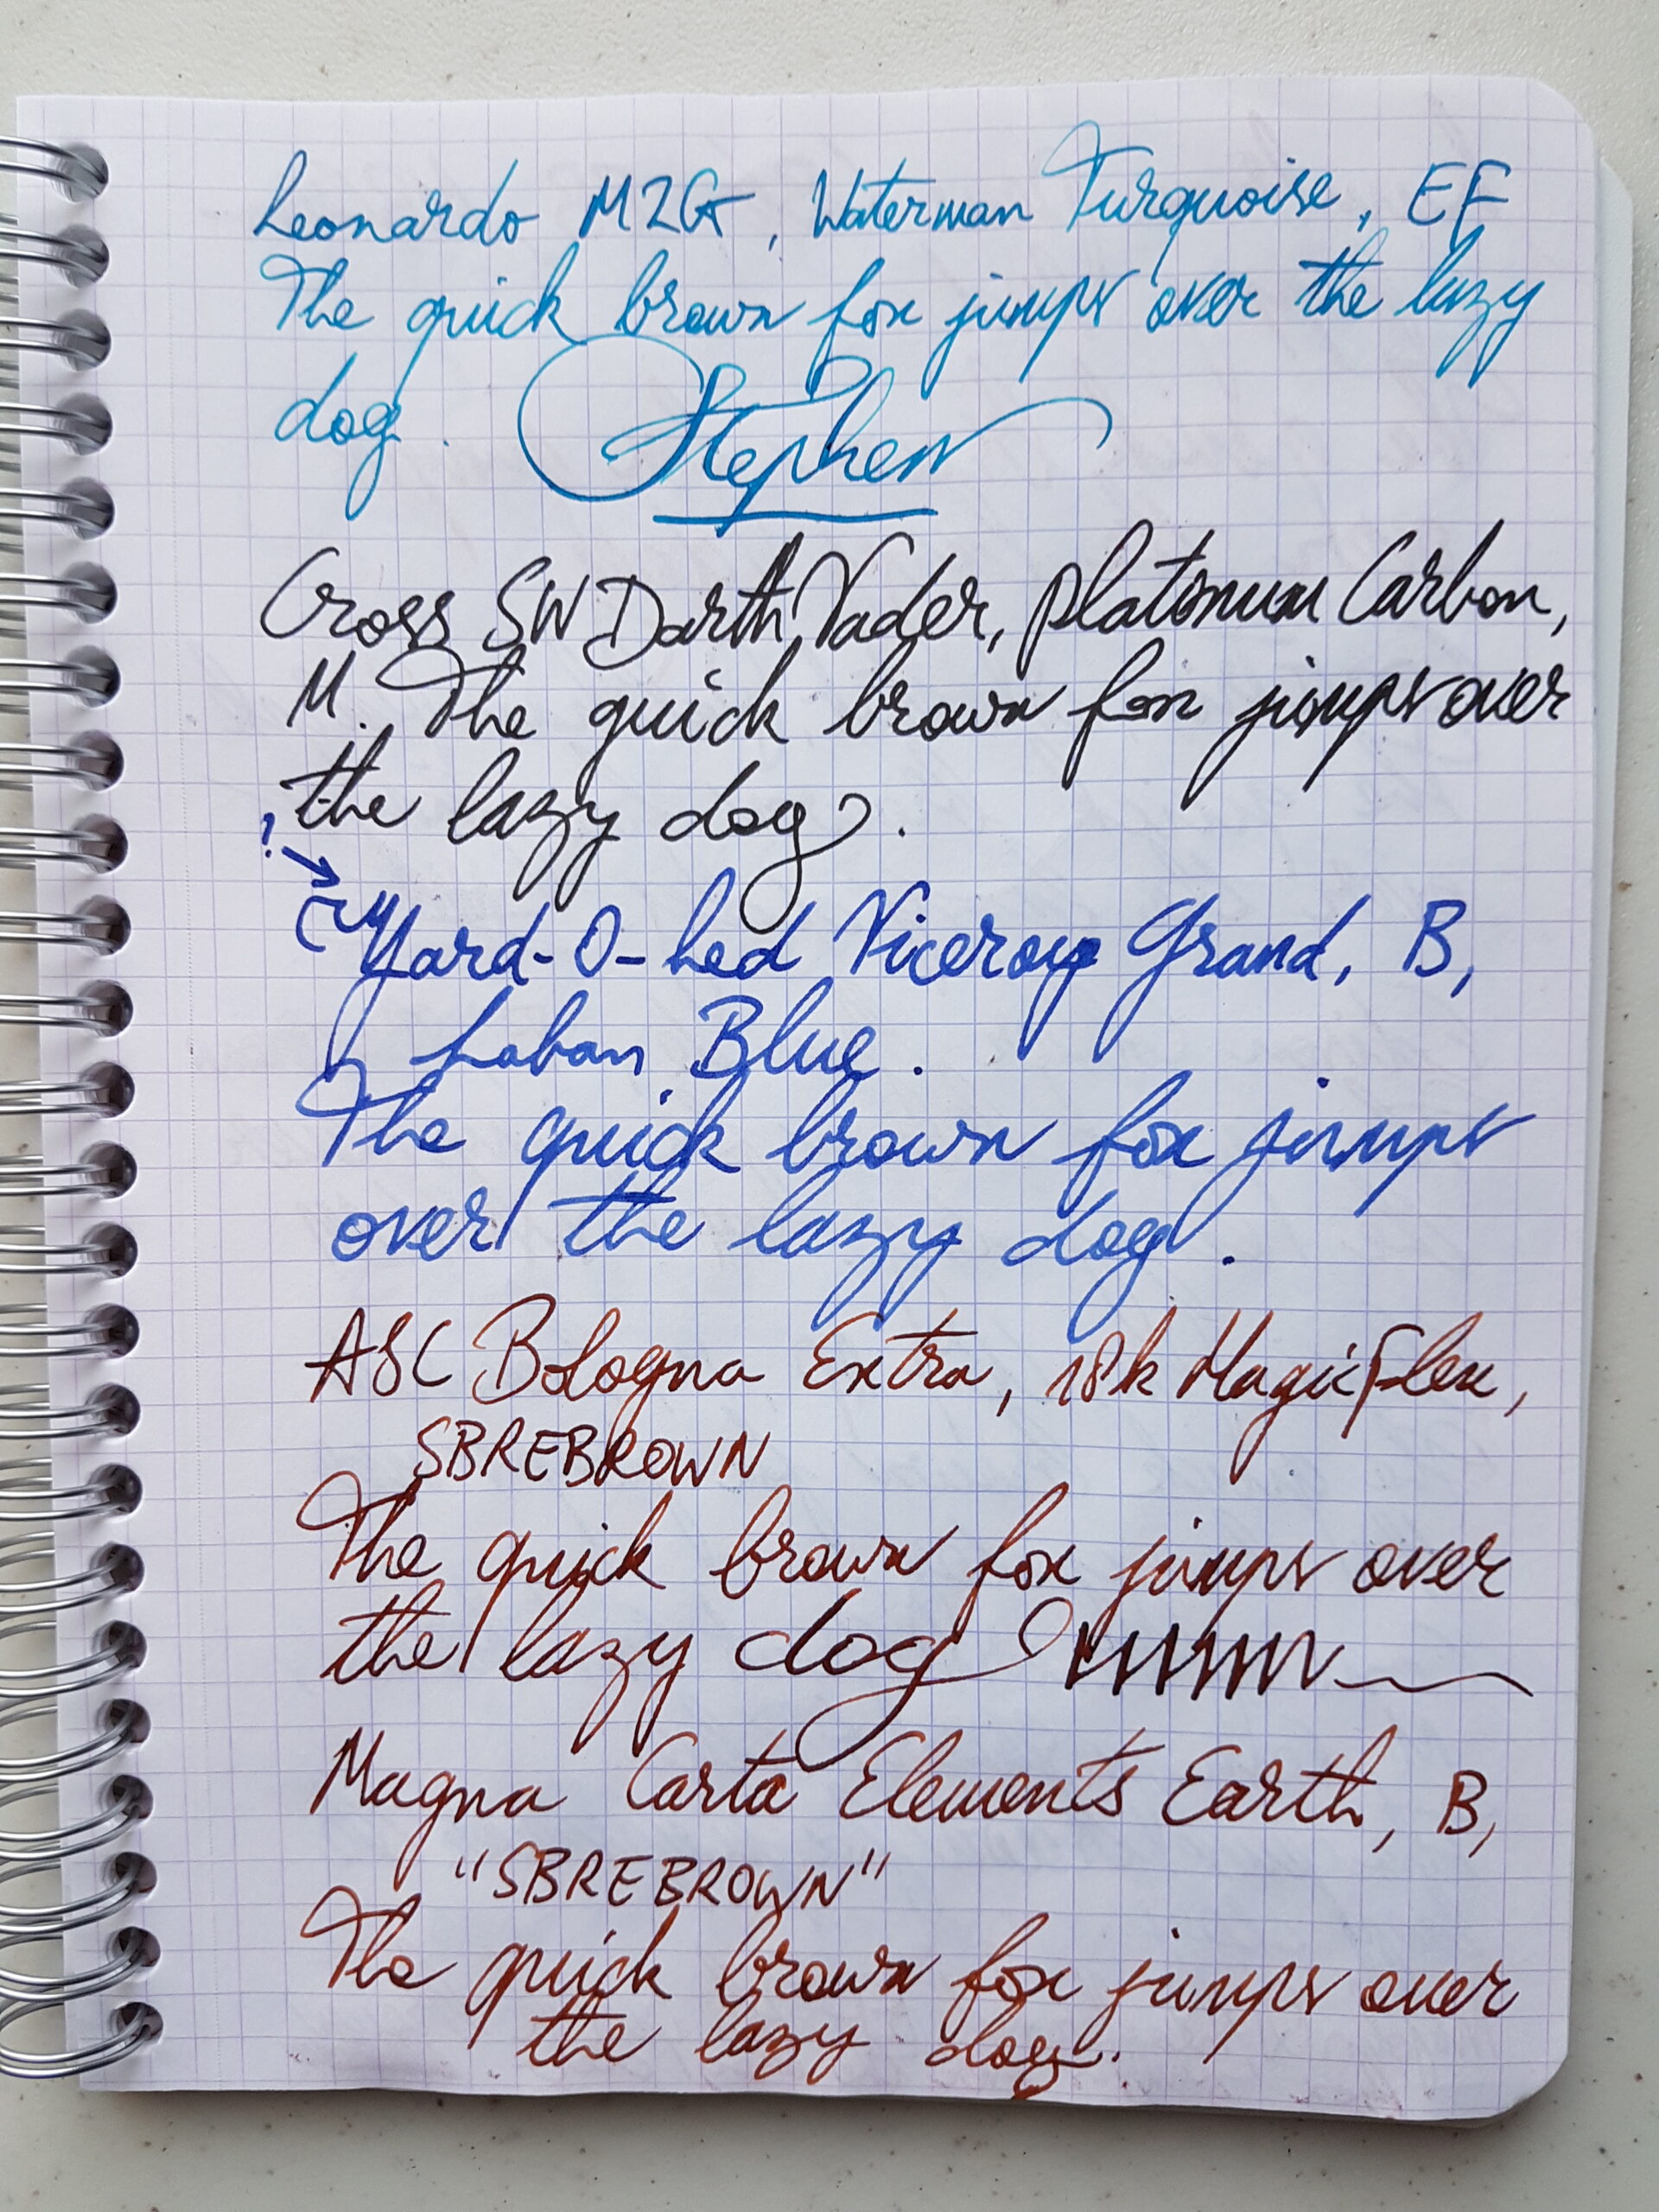 Leonardo MZG, Waterman Turquoise, EF
The quick brown fox jumps over the lazy
dog. Stephen
Cross SW Darth Vader, Platinum Carbon,
M. The quick brown fox jumps over
the lazy dog.
! Yard-O-Led Viceroy Grand, B,
Laban Blue.
The quick brown fox jumps
over the lazy dog.
ASC Bologna Extra, 18k Magic Flex,
SBREBROWN
The quick brown fox jumps over
the lazy dog
Magna Carta Elements Earth, B,
"SBREBROWN"
The quick brown fox jumps over
the lazy dog.